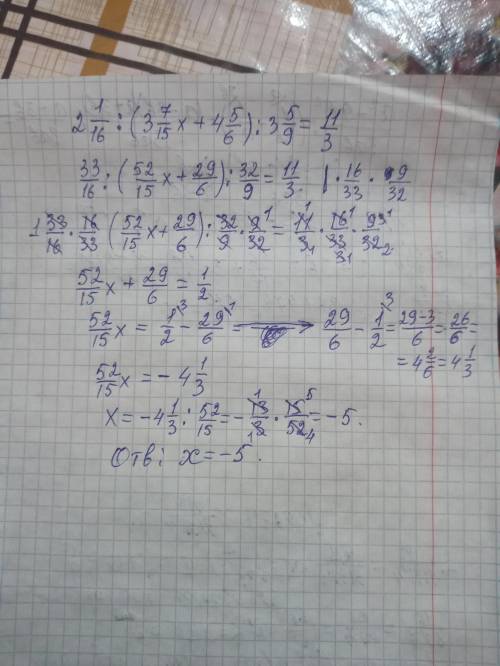 2 1/16 : (3 7/15 x + 4 5/6) : 3 5/9 = 11/3
33/16 : (52/15 x + 29/6) : 32/9 = 11/3 | · 16/33 · 9/32
33/16 · 16/33 (52/15 x + 29/6) : 32/9 · 9/32 = 11/3 · 16/33 · 9/32
52/15 x + 29/6 = 1/2
52/15 x = 1/2 - 29/6 = → 29/6 - 1/2 = 29-3/6 = 26/6 =
= 4 2/6 = 4 1/3
52/15 x = - 4 1/3
x = - 4 1/3 : 52/15 = - 13/3 · 15/52 = - 5.
Отв: x = - 5.